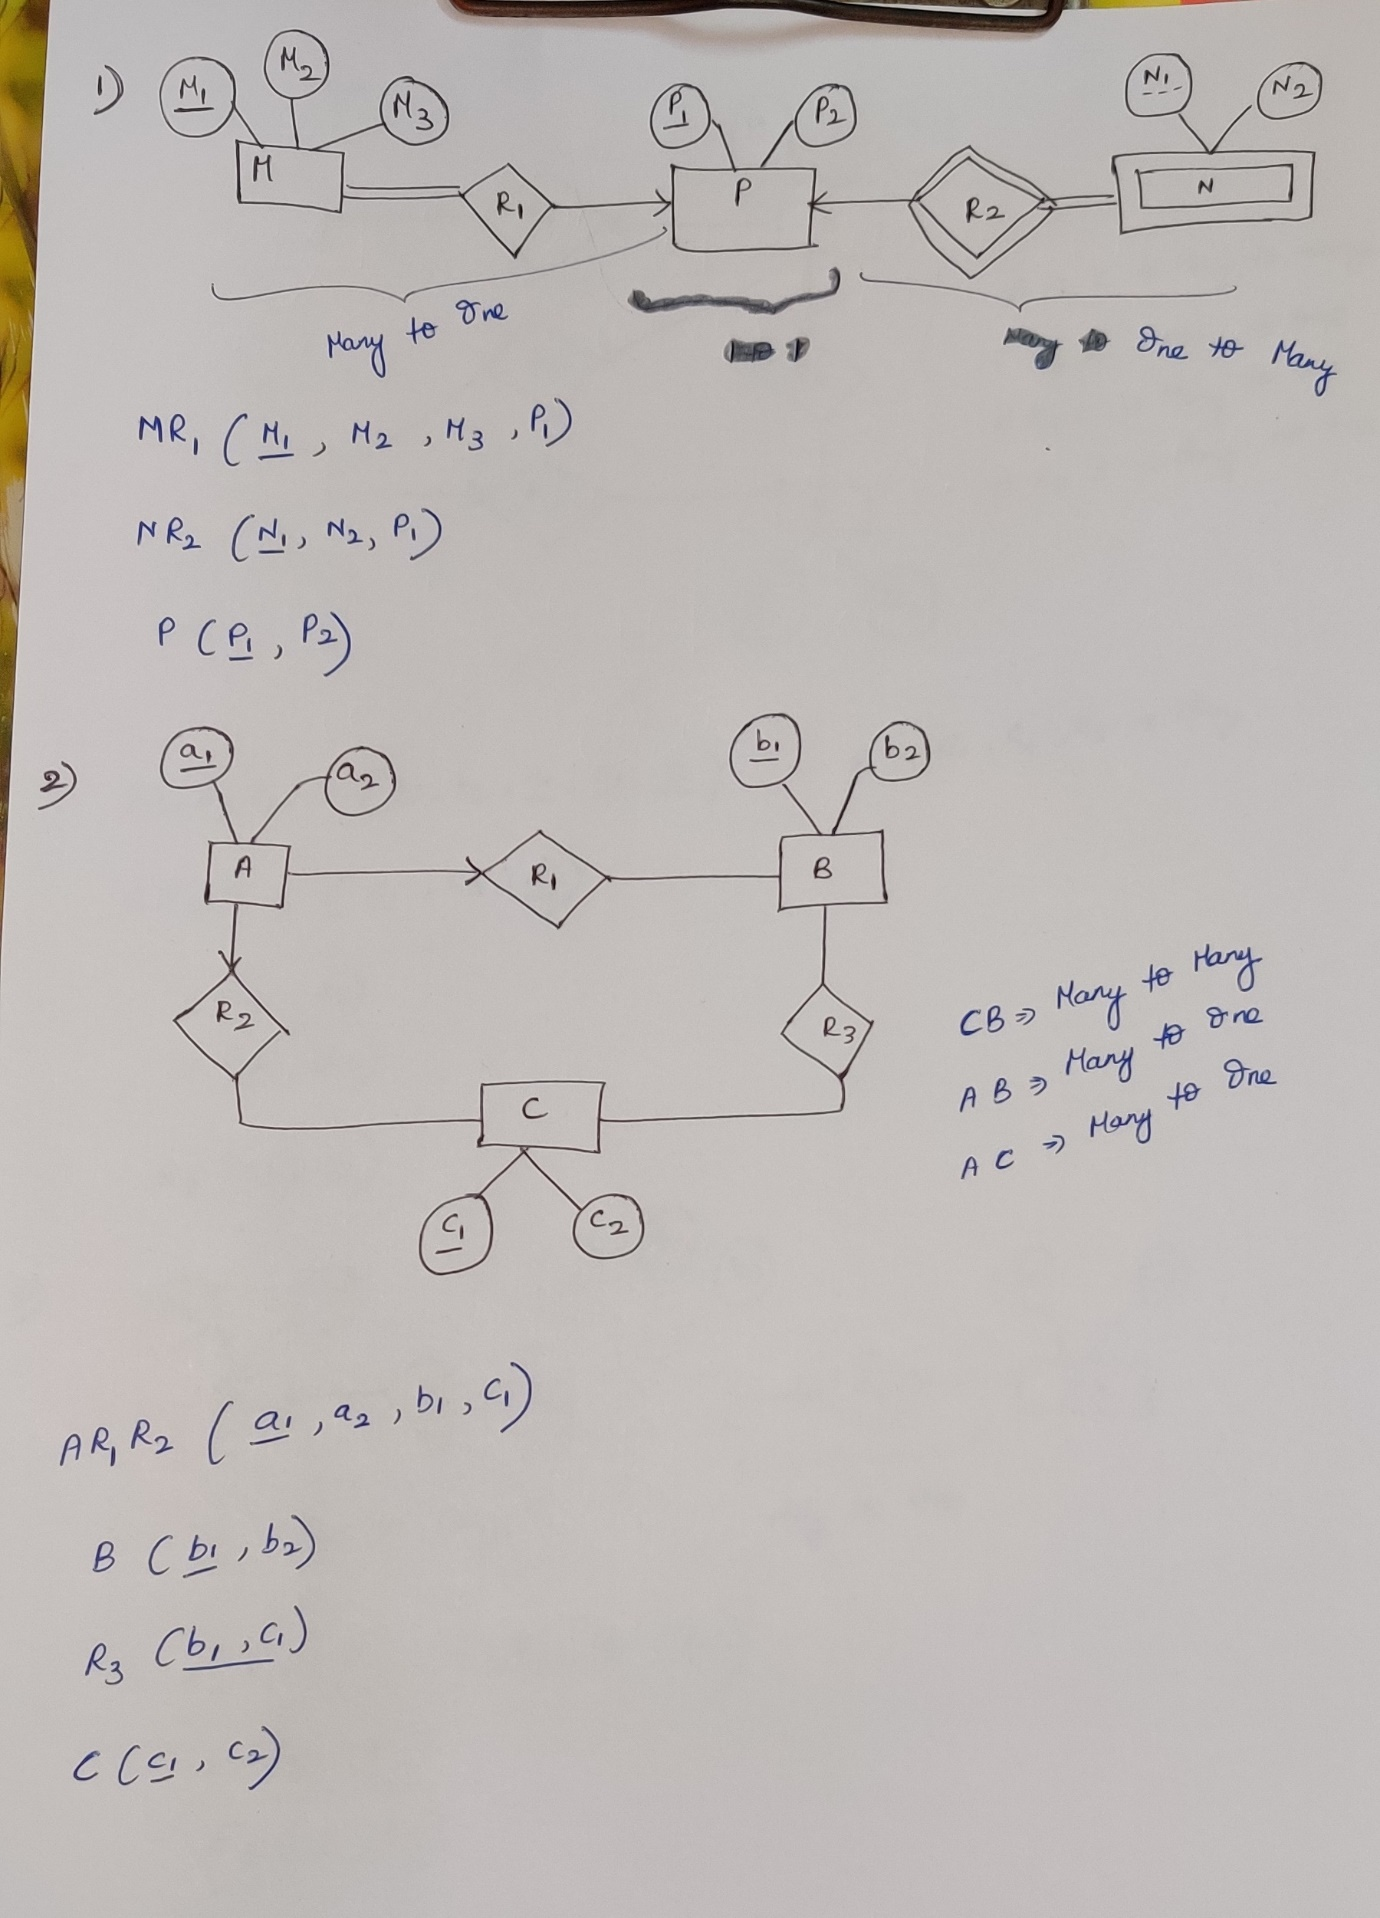 1)
M1 M2 M3 P1 P2 N1 N2
M R1 P R2 N
Many to One
One to Many
MR1 (M1, M2, M3, P1)
NR2 (N1, N2, P1)
P (P1, P2)
2)
a1 a2 b1 b2
A R1 B
R2 R3
C
C1 C2
CB ⇒ Many to Many
AB ⇒ Many to One
AC ⇒ Many to One
AR1R2 (a1, a2, b1, c1)
B (b1, b2)
R3 (b1, c1)
C (c1, c2)